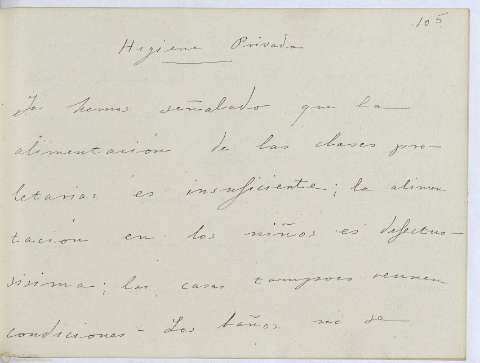 105
Higiene Privada
Ya hemos señalado que la
alimentación de las clases pro-
letarias es insuficiente; la alimen
tación en los niños es defectuo-
sisima; las casas tampoco reunen
condiciones - Los baños no se